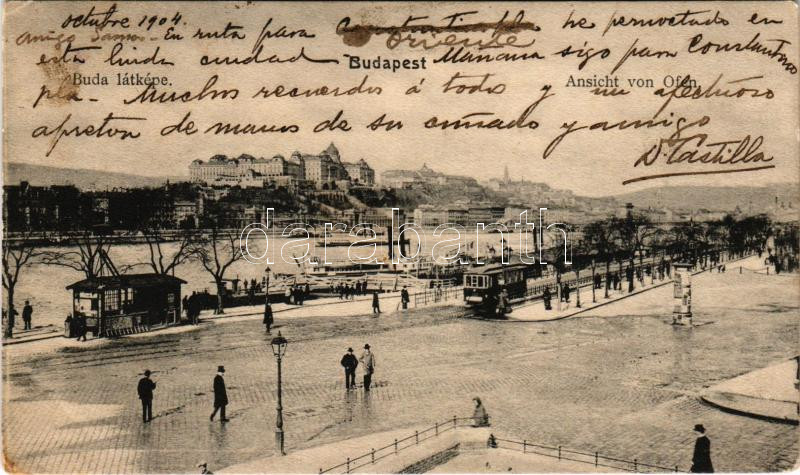 octubre 1904.
Amigo
En ruta para Constantinopla he pernoctado en
Oriente
esta linda ciudad Mañana sigo para Constantino
Budapest
Buda látképe.
Ansicht von Ofen.
pla - Muchos recuerdos á todos y un afectuoso
apreton de manos de su cuñado y amigo
D. Castilla
darabanth